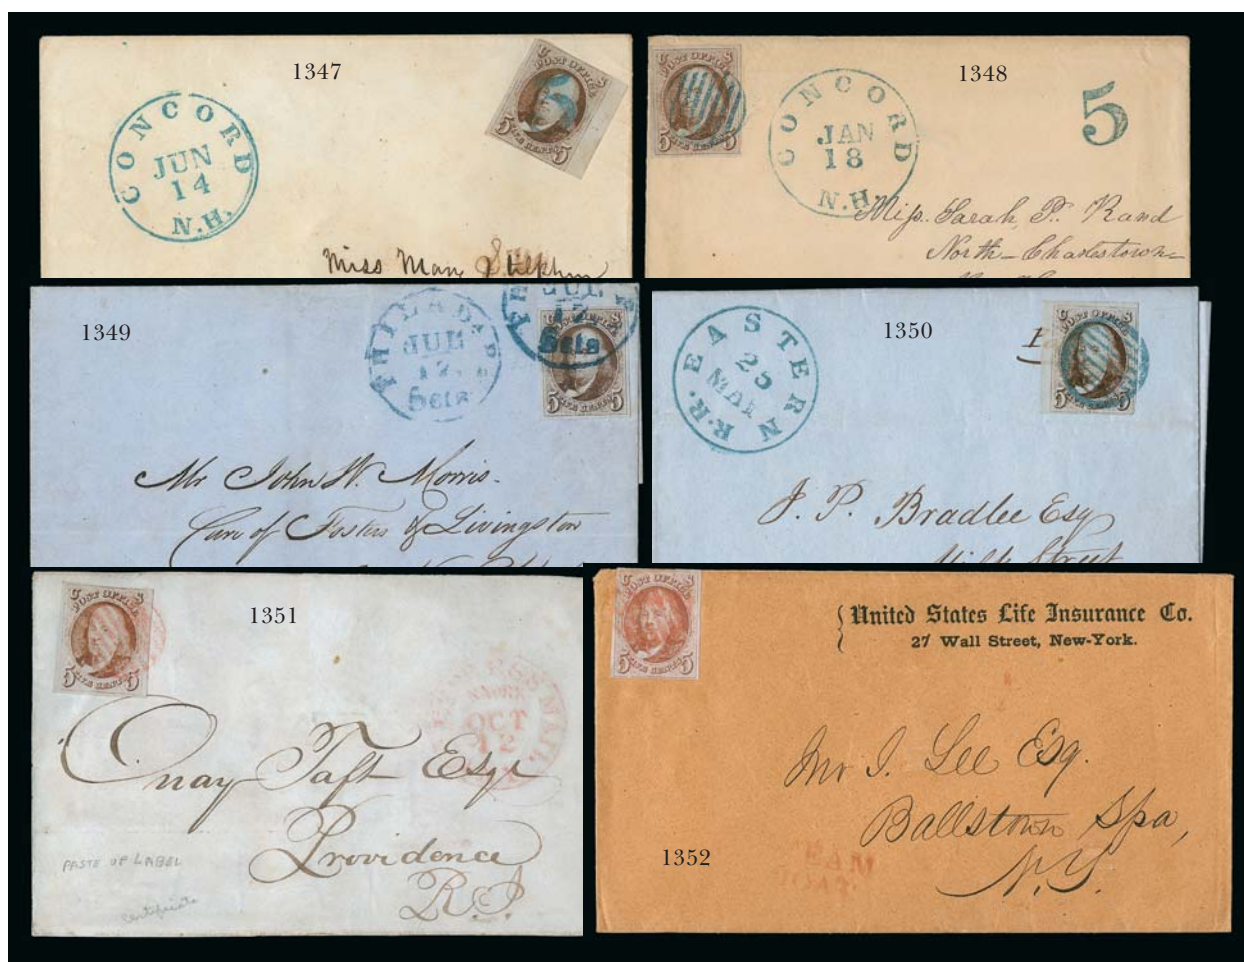 1347
POST OFFICE
U S
5 FIVE CENTS 5
CONCORD
JUN
14
N.H.
Miss Mary
1348
POST OFFICE
U S
5 FIVE CENTS 5
CONCORD
JAN
18
N.H.
5
Miss. Sarah P. Rand
North-Charlestown-
1349
PHILADA
JUL
5cts
JUL
5cts
5 5
Mr John W. Morris.
Care of Fosters & Livingston
1350
EASTERN R.R.
25
MAR
POST OFFICE
5 5
J. P. Bradlee Esq
Milk Street
1351
U S
POST OFFICE
5 FIVE CENTS 5
MAIL
OCT
12
Onay Taft Esqr
Providence
R.I.
PASTE UP LABEL
certificate
1352
POST OFFICE
5 FIVE CENTS 5
United States Life Insurance Co.
27 Wall Street, New-York.
Mr J. Lee Esq.
Ballstown Spa,
N.Y.